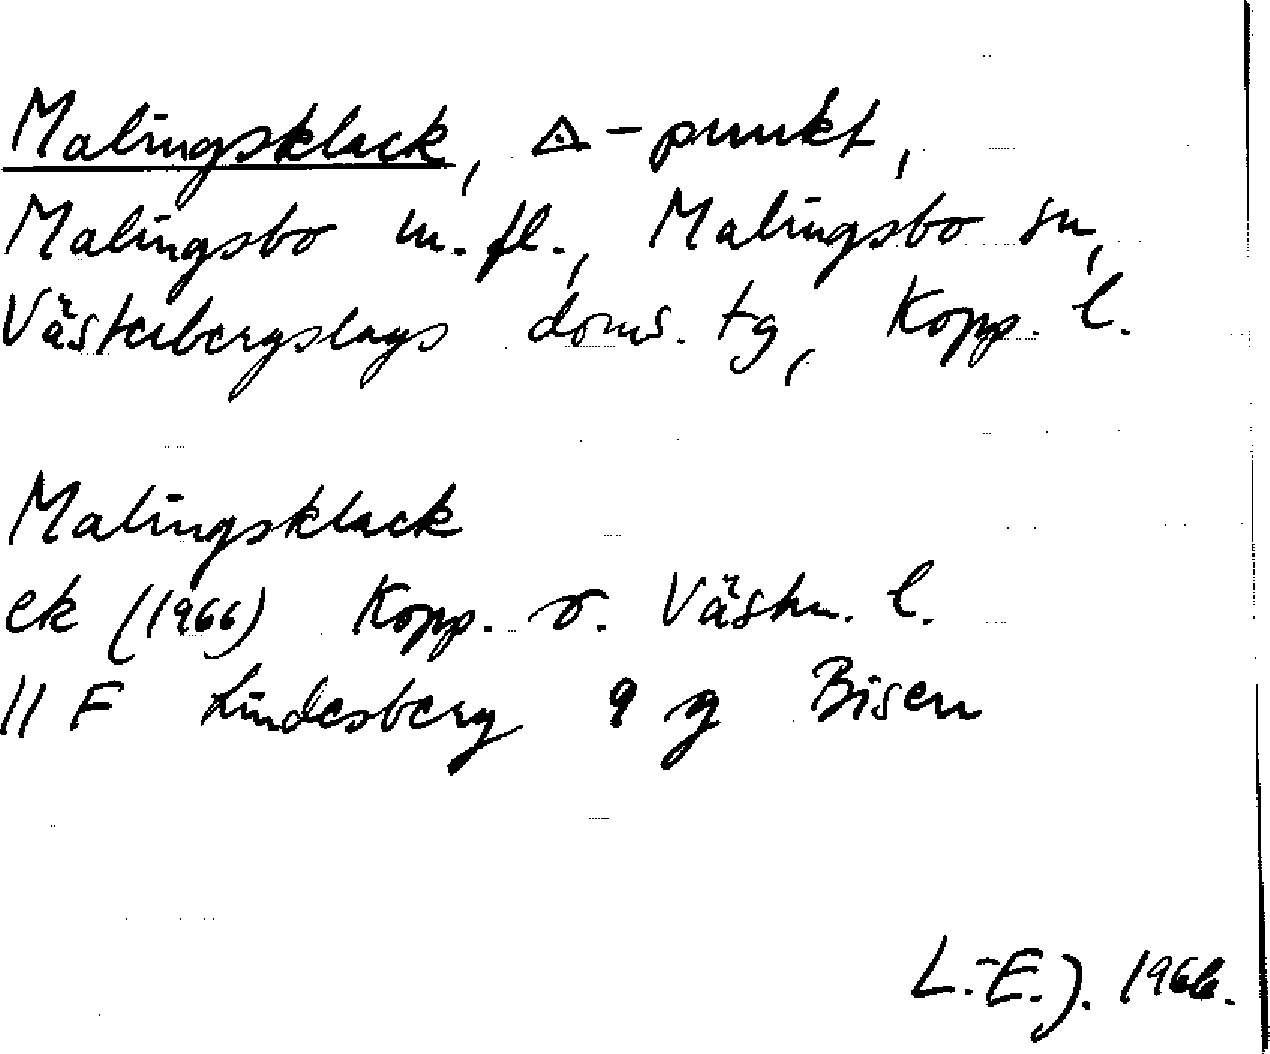 Malingsklack, △-punkt,
Malingsbo m.fl., Malingsbo sn,
Västerbergslags doms. tg, Kopp. l.
Malingsklack
ek (1966) Kopp. o. Västm. l.
11 F Lindesberg 9 g Bisen
L.-E.J. 1966.